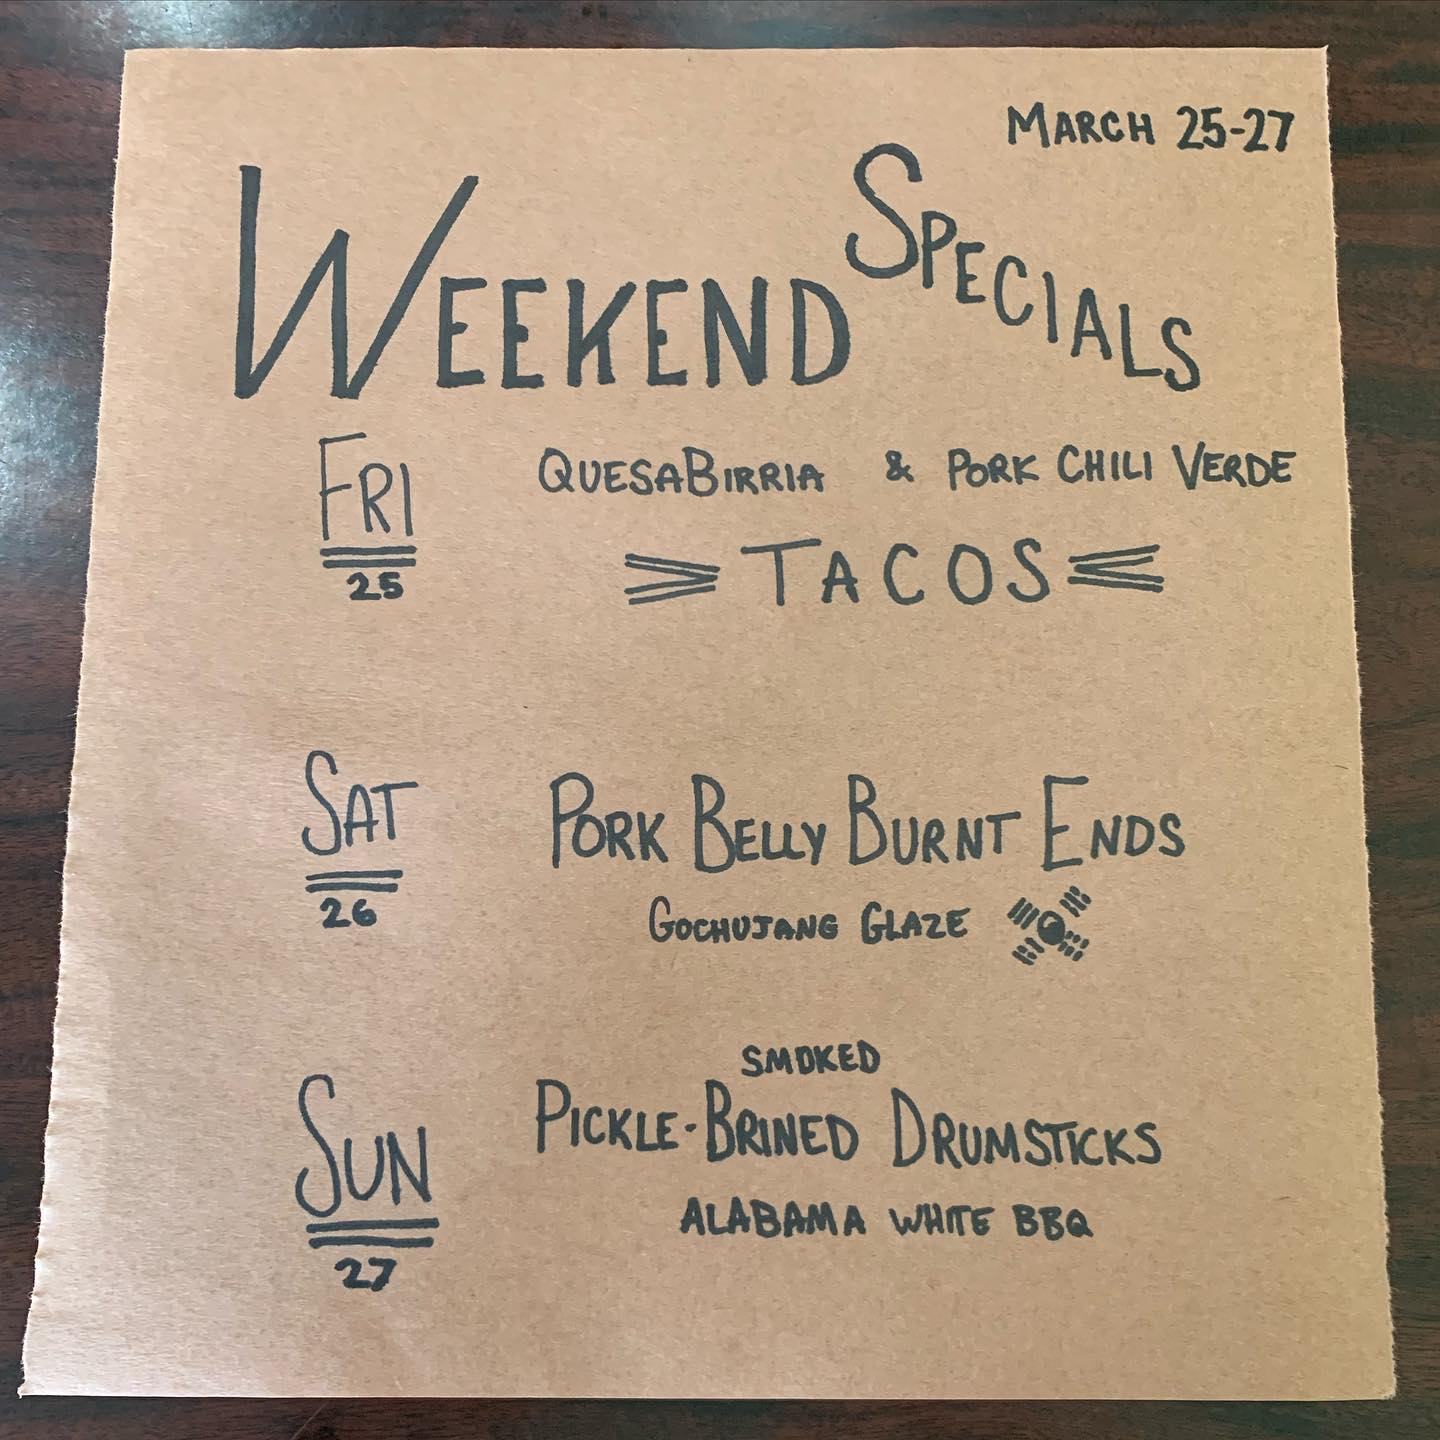 March 25-27
Weekend Specials
Fri
25
QuesaBirria & Pork Chili Verde
Tacos
Sat
26
Pork Belly Burnt Ends
Gochujang Glaze
Sun
27
Smoked
Pickle-Brined Drumsticks
Alabama White BBQ